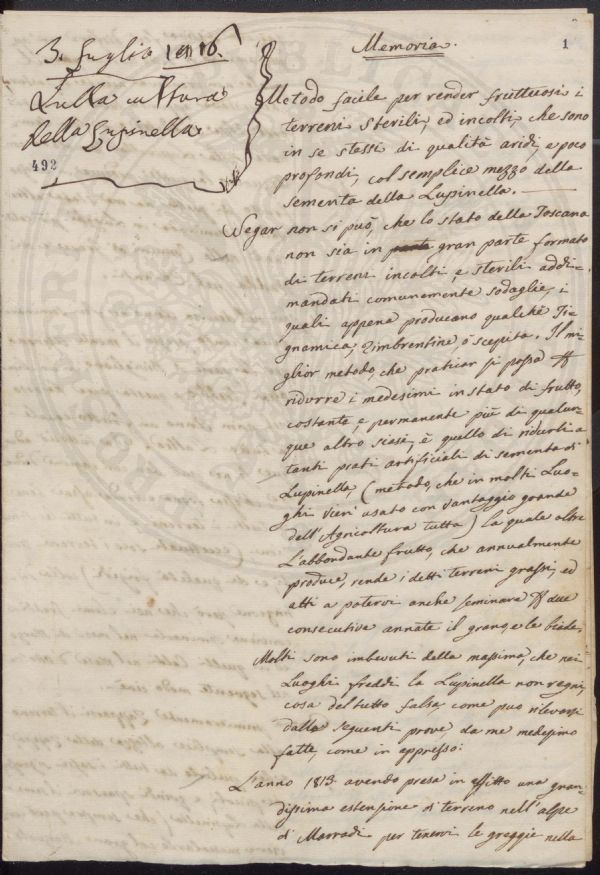 3. Luglio 1816.
Sulla cultura
della Lupinella
492
1
Memoria.
Metodo facile per render fruttuosi i
terreni sterili, ed incolti, che sono
in se stessi di qualità aridi, e poco
profondi, col semplice mezzo della
sementa della Lupinella.
Negar non si può, che lo stato della Toscana
non sia in gran parte formato
di terreni incolti, e sterili addi-
mandati comunemente sodaglie, i
quali appena producano qualche Ti-
gnamica, Zimbrentine, o scepita. Il mi-
glior metodo, che praticar si possa
ridurre i medesimi in stato di frutto,
costante, e permanente più di qualun-
que altro siasi, è quello di ridurli a
tanti prati artificiali di sementa di
Lupinella, (metodo, che in molti Luo-
ghi vien' usato con vantaggio grande
dell'Agricoltura tutta) la quale oltre
L'abbondante frutto, che annualmente
produce, rende i detti terreni grassi, ed
atti a potervi anche seminare due
consecutive annate il grano, e le biade.
Molti sono imbevuti della massima, che nei
Luoghi freddi la Lupinella non regni,
cosa del tutto falsa, come può rilevarsi
dalle seguenti prove, da me medesimo
fatte, come in appresso:
L'anno 1813 avendo presa in affitto una gran-
dissima estensione di terreno nell'alpe
di Marradi per tenervi le greggie nella